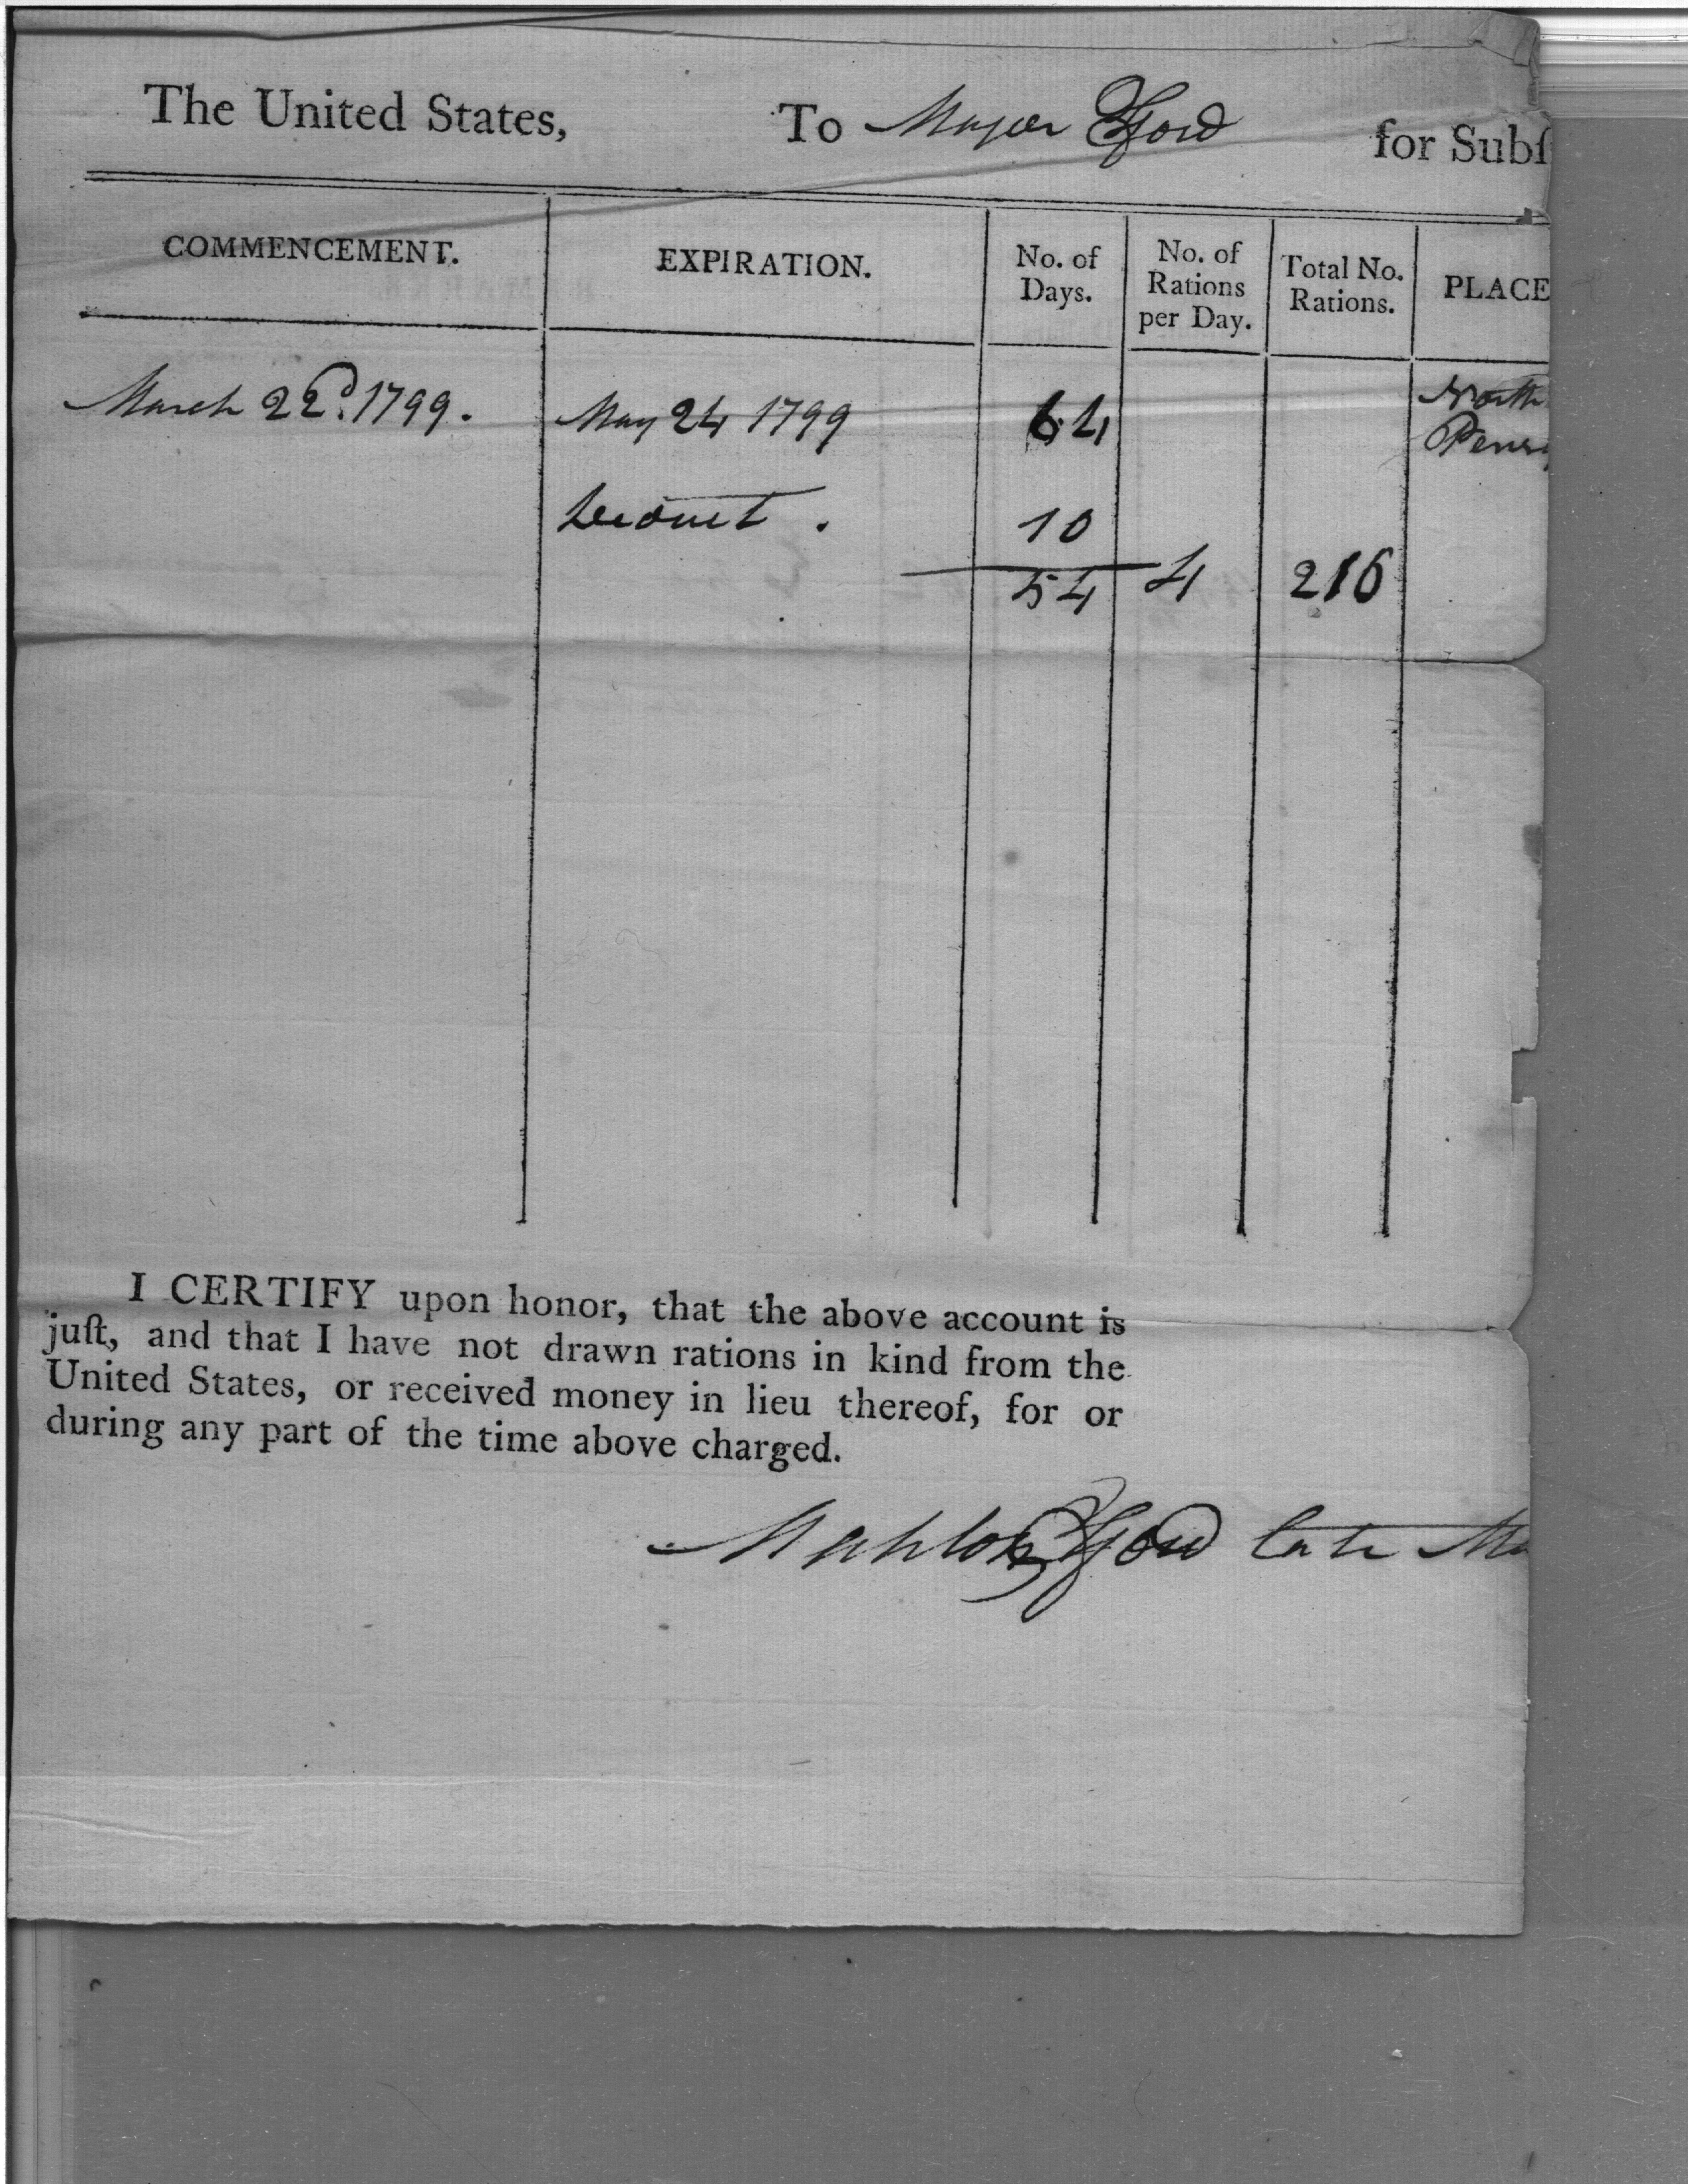 The United States, To Major Ford for Subſ
COMMENCEMENT. EXPIRATION. No. of Days. No. of Rations per Day. Total No. Rations. PLACE
March 22d. 1799. May 24 1799 64 North
Penns
deduct . 10
54 4 216
I CERTIFY upon honor, that the above account is
juſt, and that I have not drawn rations in kind from the
United States, or received money in lieu thereof, for or
during any part of the time above charged.
Mahlon Ford late Ma